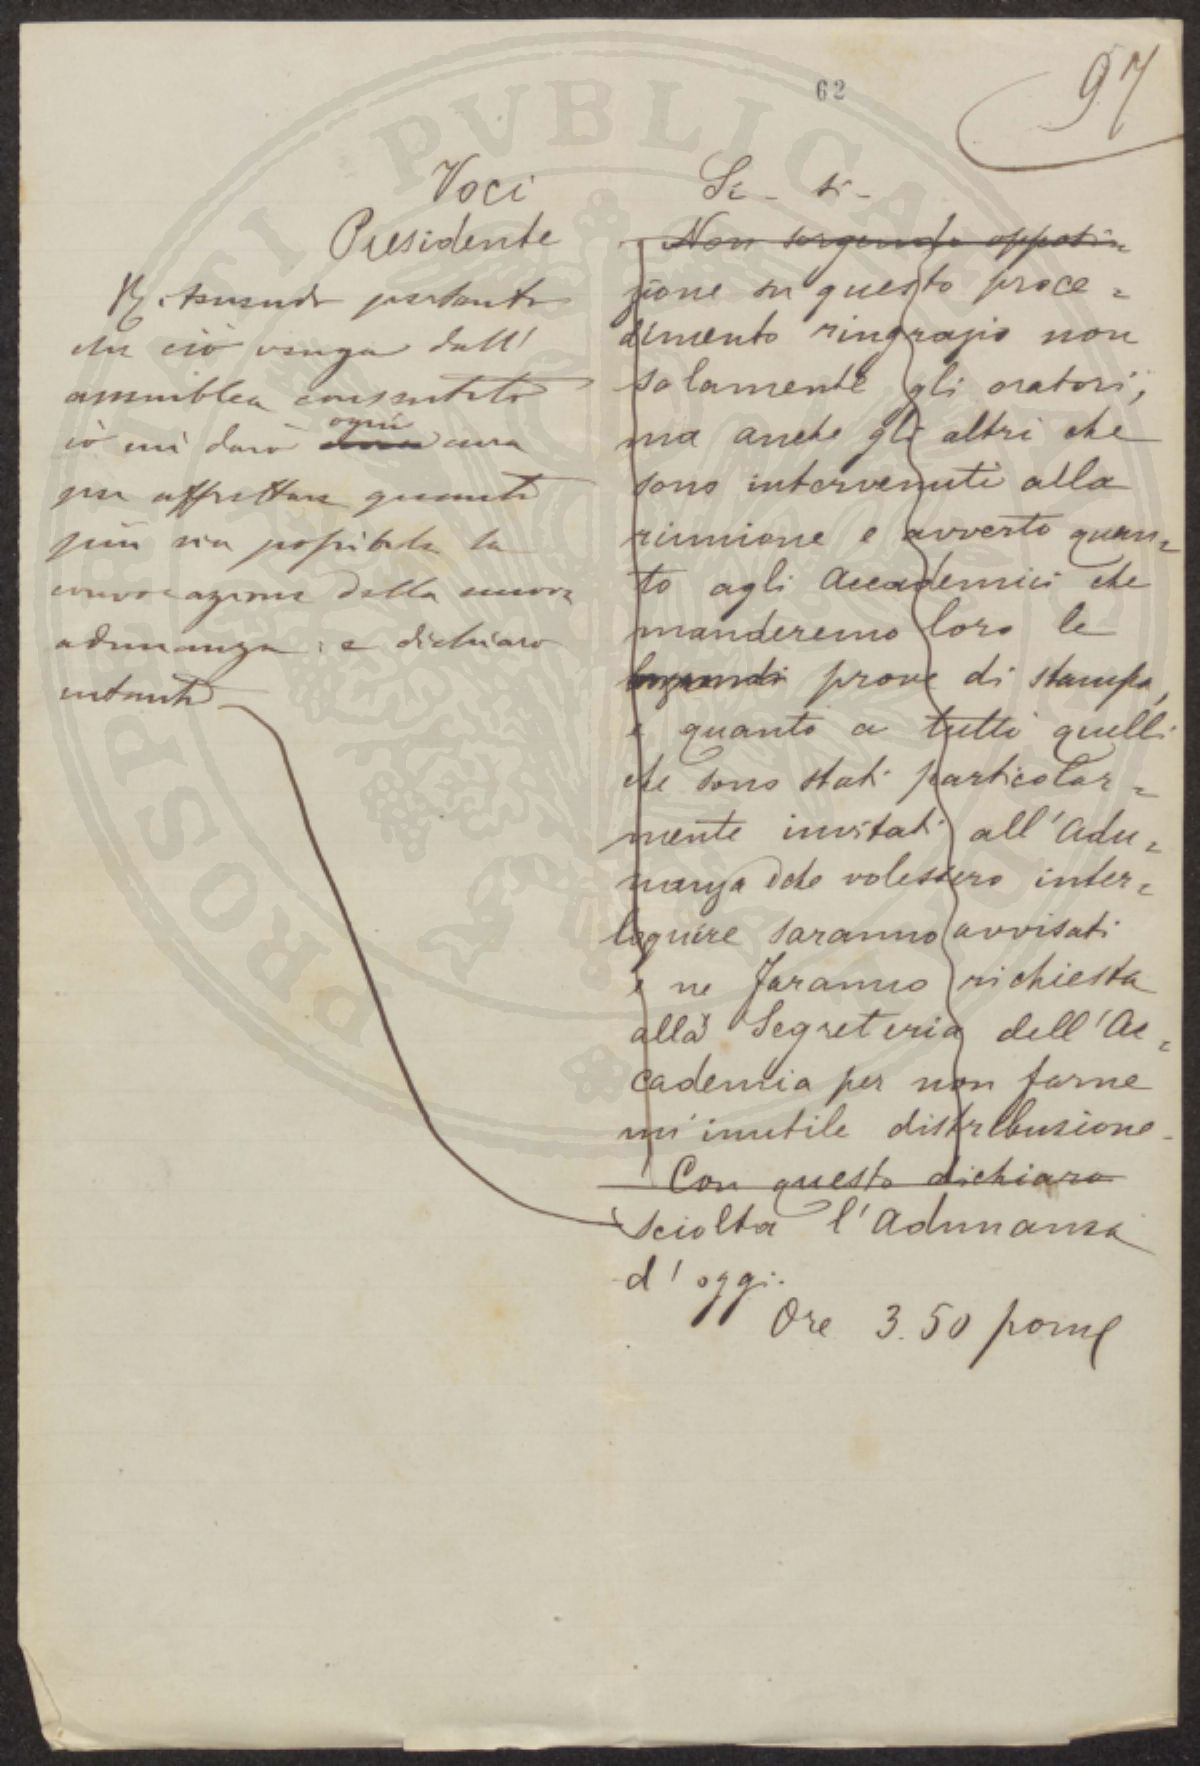 62
97
Voci
Si - si -
Presidente
Ritenendo pertanto
che ciò venga dall'
assemblea consentito
io mi darò ogni cura
per affrettare quanto
più sia possibile la
convocazione della nuova
adunanza: e dichiaro
intanto
Non sorgendo opposi=
zione su questo proce=
dimento ringrazio non
solamente gli oratori,
ma anche gli altri che
sono intervenuti alla
riunione e avverto quan=
to agli Accademici che
manderemo loro le
prove di stampa,
e quanto a tutti quelli
che sono stati particolar=
mente invitati all'Adu=
nanza che volessero inter=
loquire saranno avvisati
e ne faranno richiesta
alla Segreteria dell'Ac=
cademia per non farne
un'inutile distribuzione.
Con questo dichiaro
sciolta l'Adunanza
d'oggi.
Ore 3.50 pom
PROSPERITATI PVBLICAE